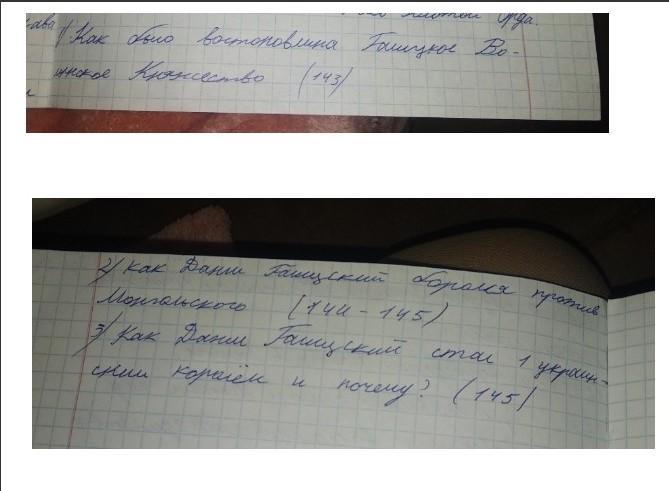 Золотой Орда.
1) Как было востоновлина Галицкое Во-
инское Княжество (143)
2) Как Данил Галицский боролся против
Монгольского (144-145)
3) Как Данил Галицский стал 1 украин-
ским королём и почему? (145)